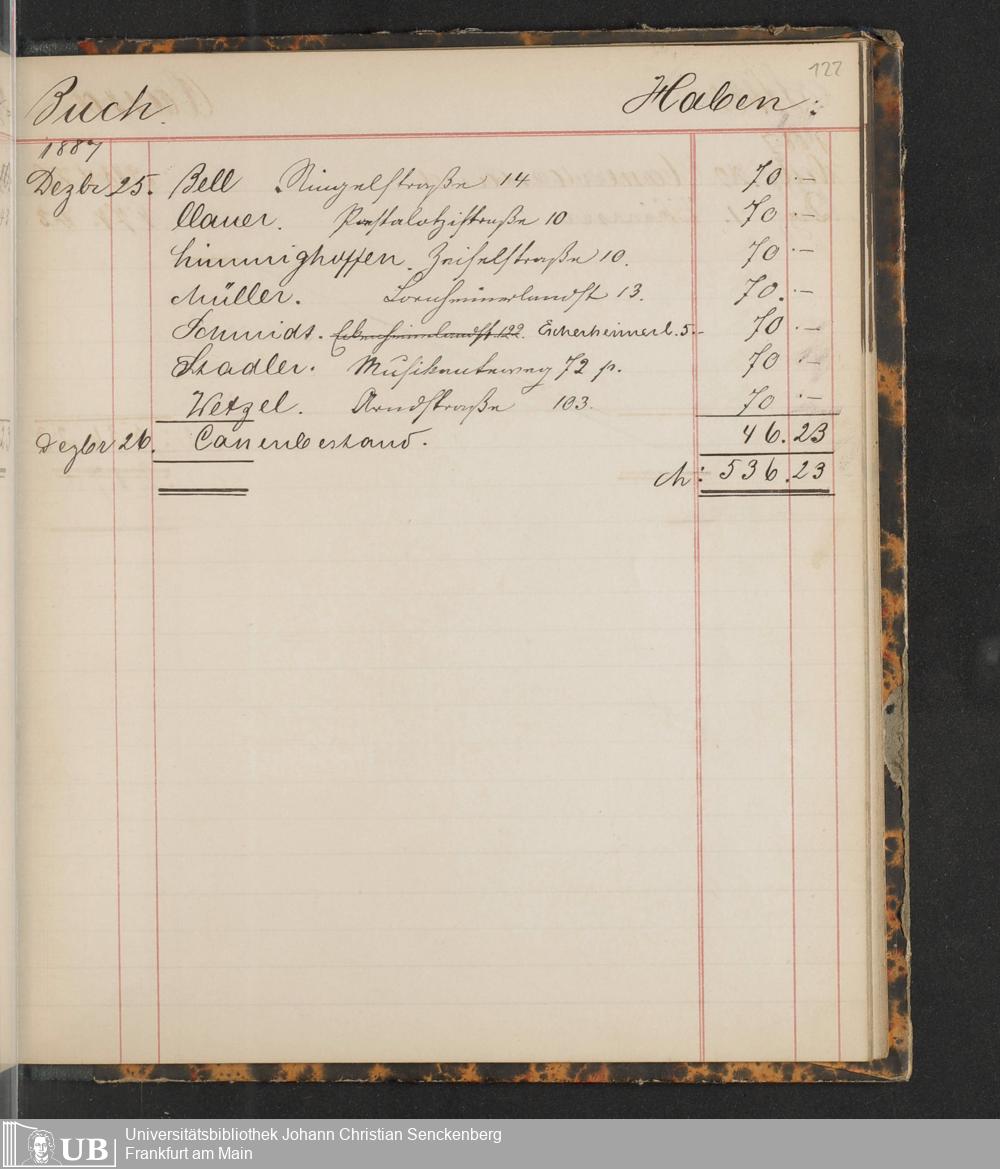 122
Buch. Haben:
1887
Dezbr 25. Bell Ringelstraße 14 70.—
Clauer. Pestalozzistraße 10 70.—
Limmighoffen. Zeiselstraße 10. 70.—
Müller. Bornheimerlandst 13. 70.—
Schmidt. Eckenheimerlandst 122. Escherheimerl. 5.- 70.—
Stadler. Musikanteweg 72 p. 70.—
Wetzel. Arndstraße 103. 70.—
Dezbr 26. Cassenbestand. 46.23
M: 536.23
UB Universitätsbibliothek Johann Christian Senckenberg
Frankfurt am Main